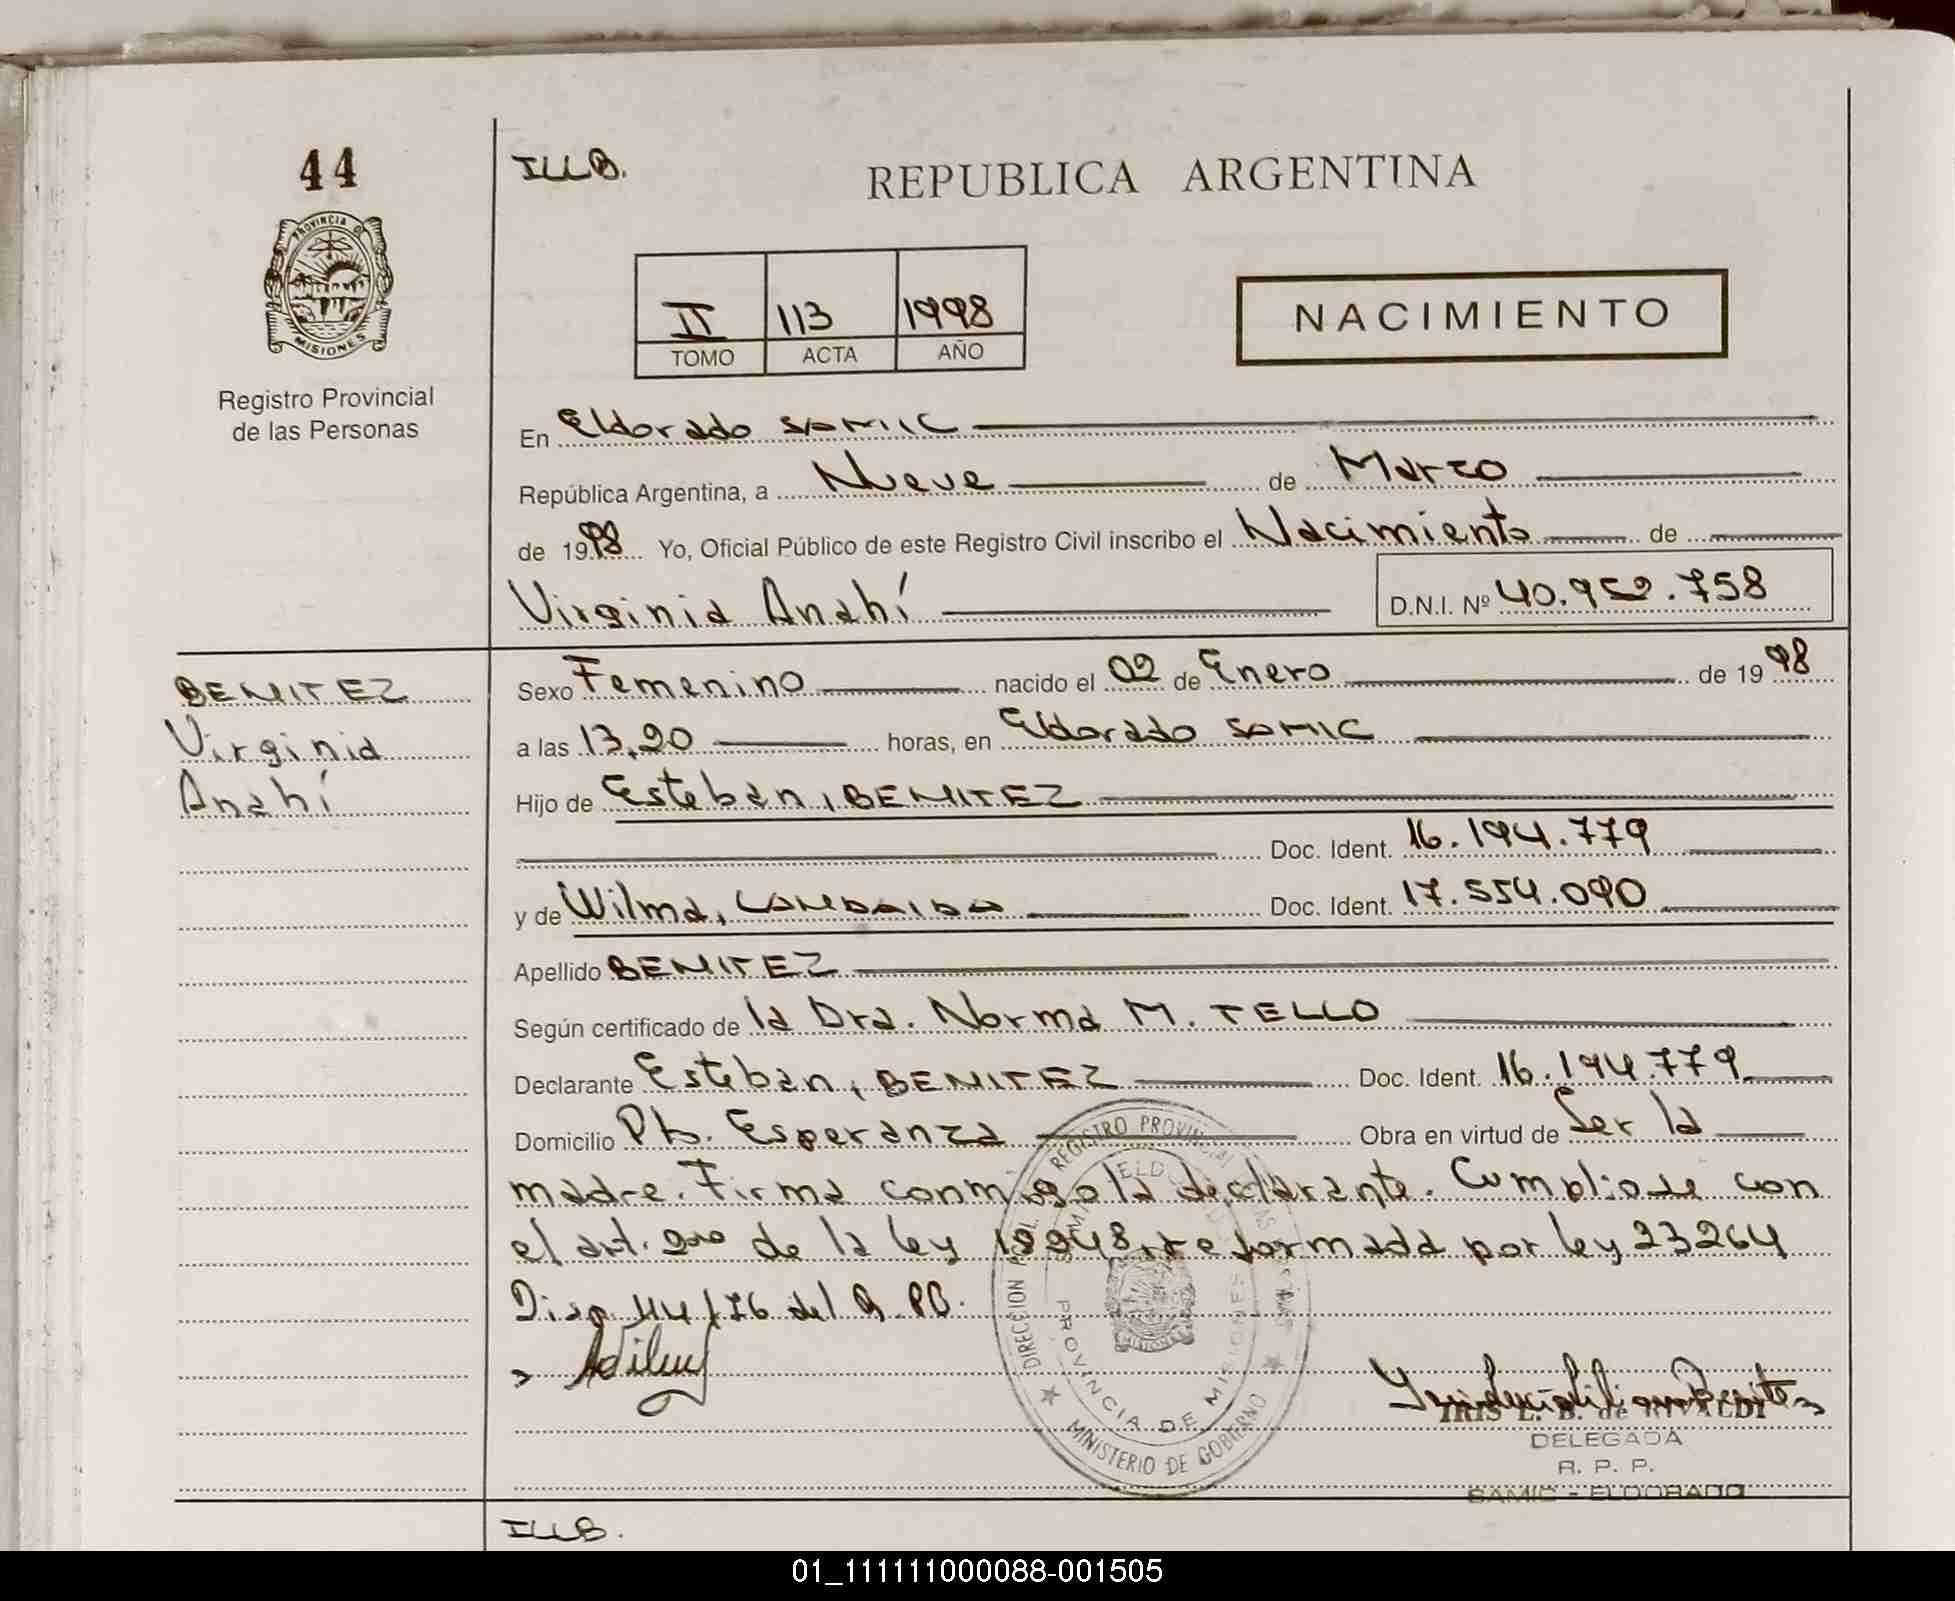 44
ILLB.
REPUBLICA ARGENTINA
PROVINCIA D
MISIONES
Registro Provincial
de las Personas
II 113 1998
TOMO ACTA AÑO
NACIMIENTO
En Eldorado SAMIC
República Argentina, a Nueve de Marzo
de 1998 Yo, Oficial Público de este Registro Civil inscribo el Nacimiento de
Virginia Anahí D.N.I. Nº 40.952.758
BENITEZ
Virginia
Anahí
Sexo Femenino nacido el 02 de Enero de 1998
a las 13,20 horas, en Eldorado SAMIC
Hijo de Esteban, BENITEZ
Doc. Ident. 16.194.779
y de Wilma, Doc. Ident. 17.554.090
Apellido BENITEZ
Según certificado de la Dra. Norma M. TELLO
Declarante Esteban, BENITEZ Doc. Ident. 16.194.779
Domicilio Pto. Esperanza Obra en virtud de Ser la
madre. Firma conmigo la declarante. Cumpliose con
el art. 2do de la ley reformada por ley 23264
Disp 114/76 del
REGISTRO PROVINCIAL
DIRECCION
PROVINCIA DE MISIONES
MINISTERIO DE GOBIERNO
IRIS L. B. de RIVALDI
DELEGADA
R. P. P.
SAMIC - ELDORADO
ILLB.
01_111111000088-001505